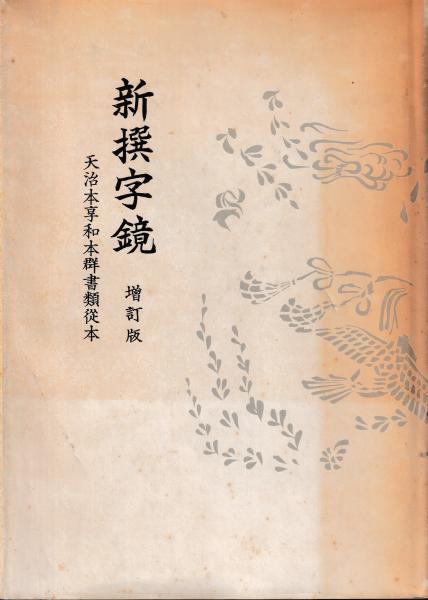 新撰字鏡
増訂版
天治本享和本群書類従本